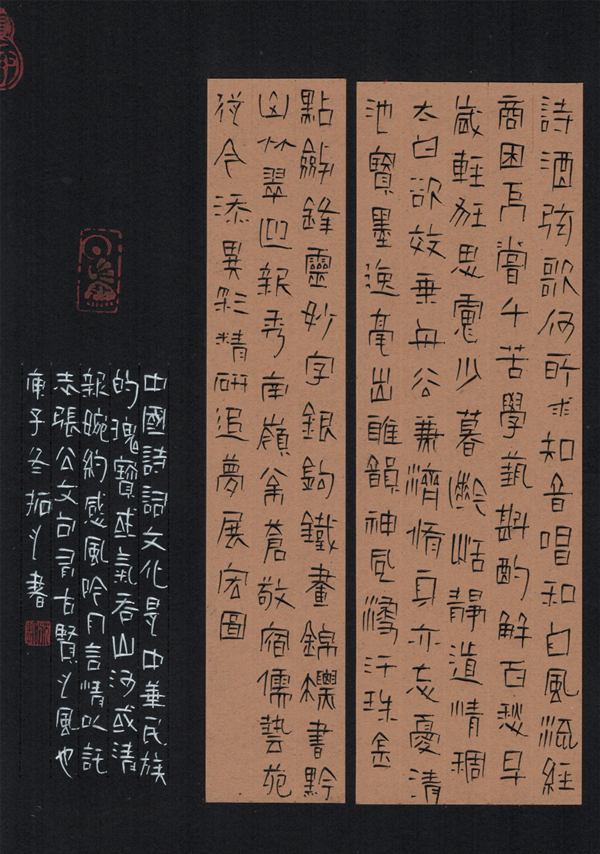 詩酒弦歌何所求知音唱和自風流經
商困厄嘗千苦學藝斟酌解百愁早
歲輕狂思慮少暮齡恬靜道情稠
太白欲效乘舟公兼濟脩身亦忘憂清
池寶墨逸毫出韻神風汗珠金
點劍鋒靈妙字銀鉤鐵畫錦標書黔
山竹翠迎新秀南嶺翁蒼敬宿儒藝苑
從今添異彩精研追夢展宏圖
中國詩詞文化是中華民族
的瑰寶壯氣吞山河或清
新婉約感風吟月言情以託
志張公文句有古賢之風也
庚子冬拓之書